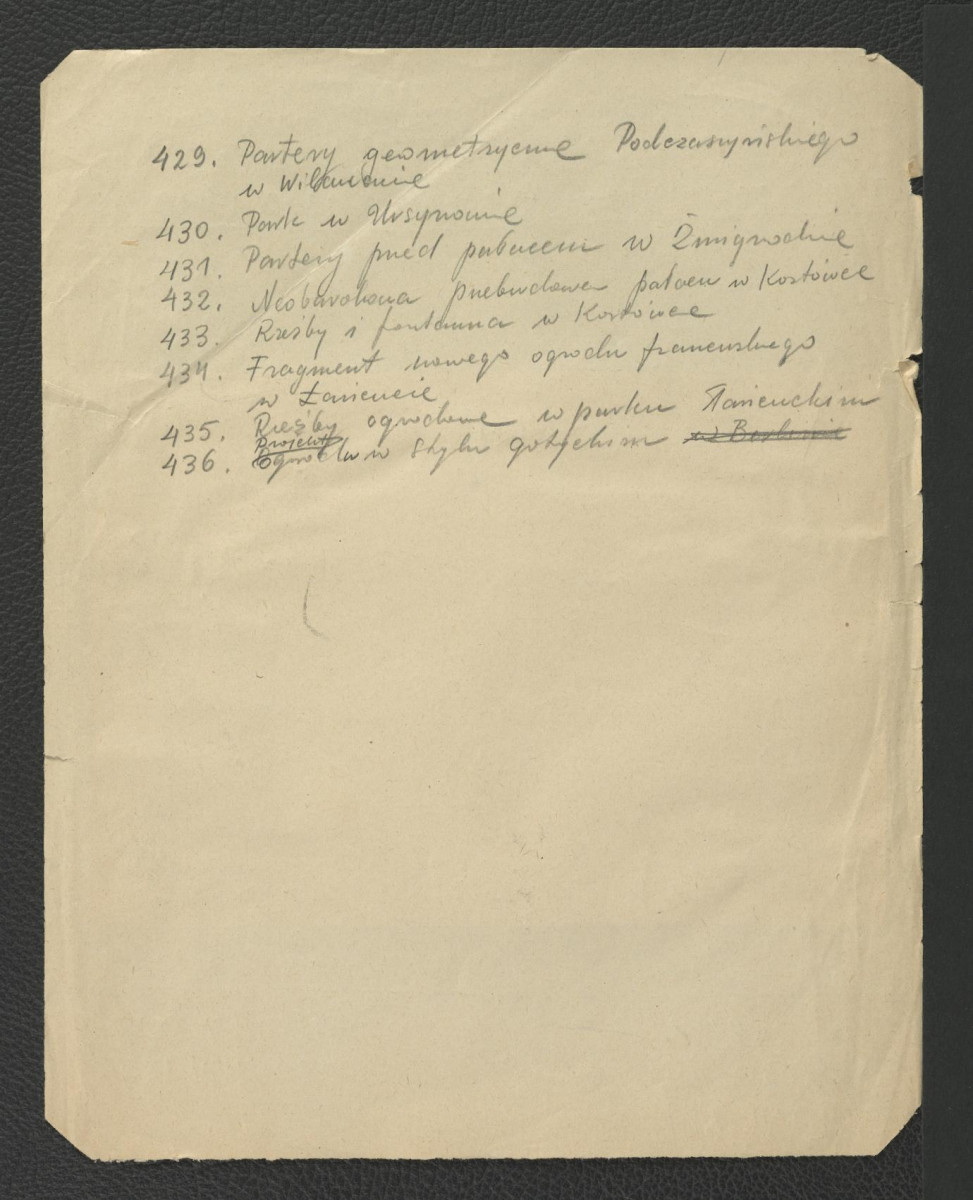 429. Partery geometryczne Podczaszyńskiego
w Wilanowie
430. Park w Ursynowie
431. Partery przed pałacem w Żmigrodzie
432. Neobarokowa przebudowa pałacu w Kozłówce
433. Rzeźby i fontanna w Kozłówce
434. Fragment nowego ogrodu francuskiego
w Łańcucie
435. Rzeźby ogrodowe w parku Łańcuckim
Projekty
436. Ogrodu w stylu gotyckim